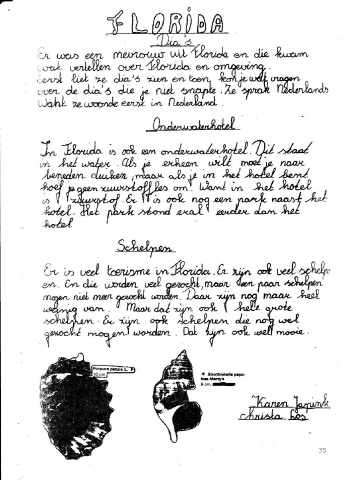 FLORIDA
Dia's
Er was een mevrouw uit Florida en die kwam
wat vertellen over Florida en omgeving.
Eerst liet ze dia's zien en toen, kon je wat vragen
over de dia's die je niet snapte. Ze sprak Nederlands
Want ze woonde eerst in Nederland.
Onderwaterhotel
In Florida is ook een onderwaterhotel. Dit staat
in het water. Als je erheen wilt moet je naar
beneden duiken, maar als je in het hotel bent
hoef je geen zuurstoffles om. Want in het hotel
is zuurstof. Er is ook nog een park naast het
hotel. Het park stond er al eerder dan het
hotel
Schelpen
Er is veel toerisme in Florida. Er zijn ook veel schelp
en. En die worden veel gezocht, maar een paar schelpen
mogen niet meer gezocht worden. Daar zijn nog maar heel
weinig van. Maar dat zijn ook hele grote
schelpen. Er zijn ook schelpen die nog wel
gezocht mogen worden. Dat zijn ook wel mooie.
Purpura patula L.
Karen
christa Los